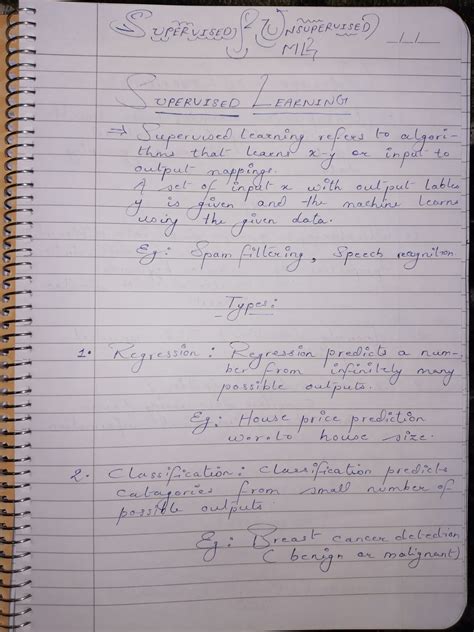 Supervised & Unsupervised
ML
Supervised Learning
⇒ Supervised learning refers to algori-
thms that learns x-y or input to
output mappings.
A set of input x with output lables
y is given and the machine learns
using the given data.
Eg: Spam filtering, Speech recognition
Types:
1. Regression: Regression predicts a num-
ber from infinitely many
possible outputs.
Eg: House price prediction
w.r.to house size.
2. Classification: Classification predicts
catagories from small number of
possible outputs.
Eg: Breast cancer detection
(benign or malignant)